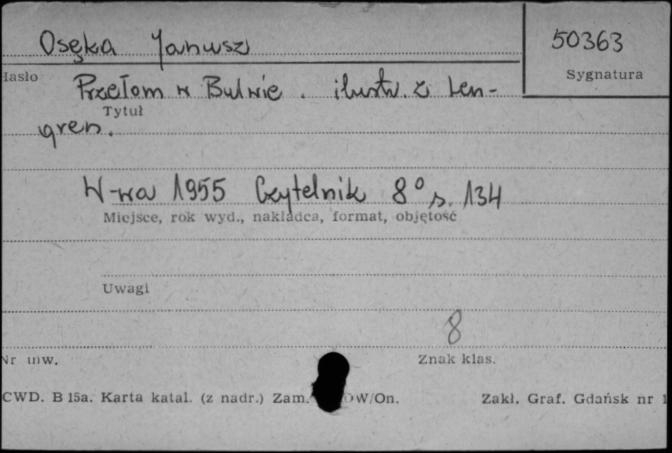 Osęka Janusz
50363
Hasło
Sygnatura
Przełom w Bulwie. ilustr. Z Len-
Tytuł
gren.
W-wa 1955 Czytelnik 8° s. 134
Miejsce, rok wyd., nakładca, format, objętość
Uwagi
8
Nr inw.
Znak klas.
CWD. B 15a. Karta katal. (z nadr.) Zam. OW/On. Zakł. Graf. Gdańsk nr 1